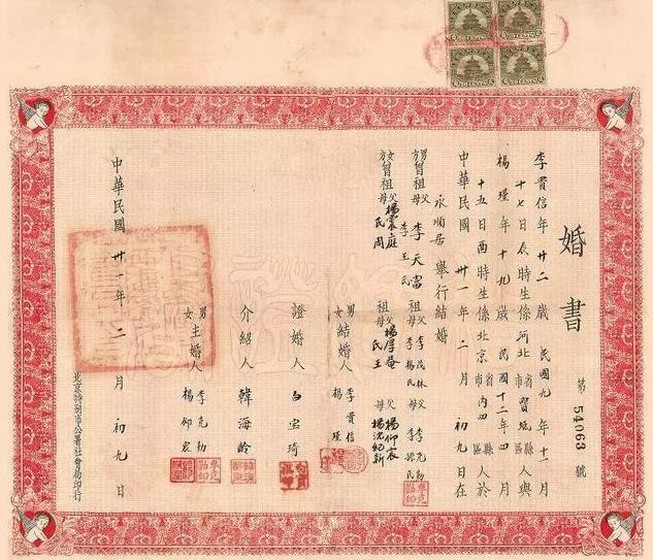 婚書
第 54063 號
李貴信年廿二歲民國九年十一月
十七日辰時生係河北省市
縣區人與
楊瑾年十九歲民國十二年四月
十五日酉時生係北京省市內四縣區人於
中華民國卅一年二月初九日在
永順居舉行結婚
男方曾祖父李天富
母李王氏
祖父李茂林
母李楊氏
父李克勤
母李
氏
女方曾祖父楊震庭
母民周
祖父楊厚菴
母氏王
父楊仰宸
母楊沈紀新
男女結婚人
李貴信
楊瑾
證婚人
白宝琦
介紹人
韓海齡
男女主婚人
李克勤
楊仰宸
中華民國卅一年二月初九日
北京特別市公署社會局印行